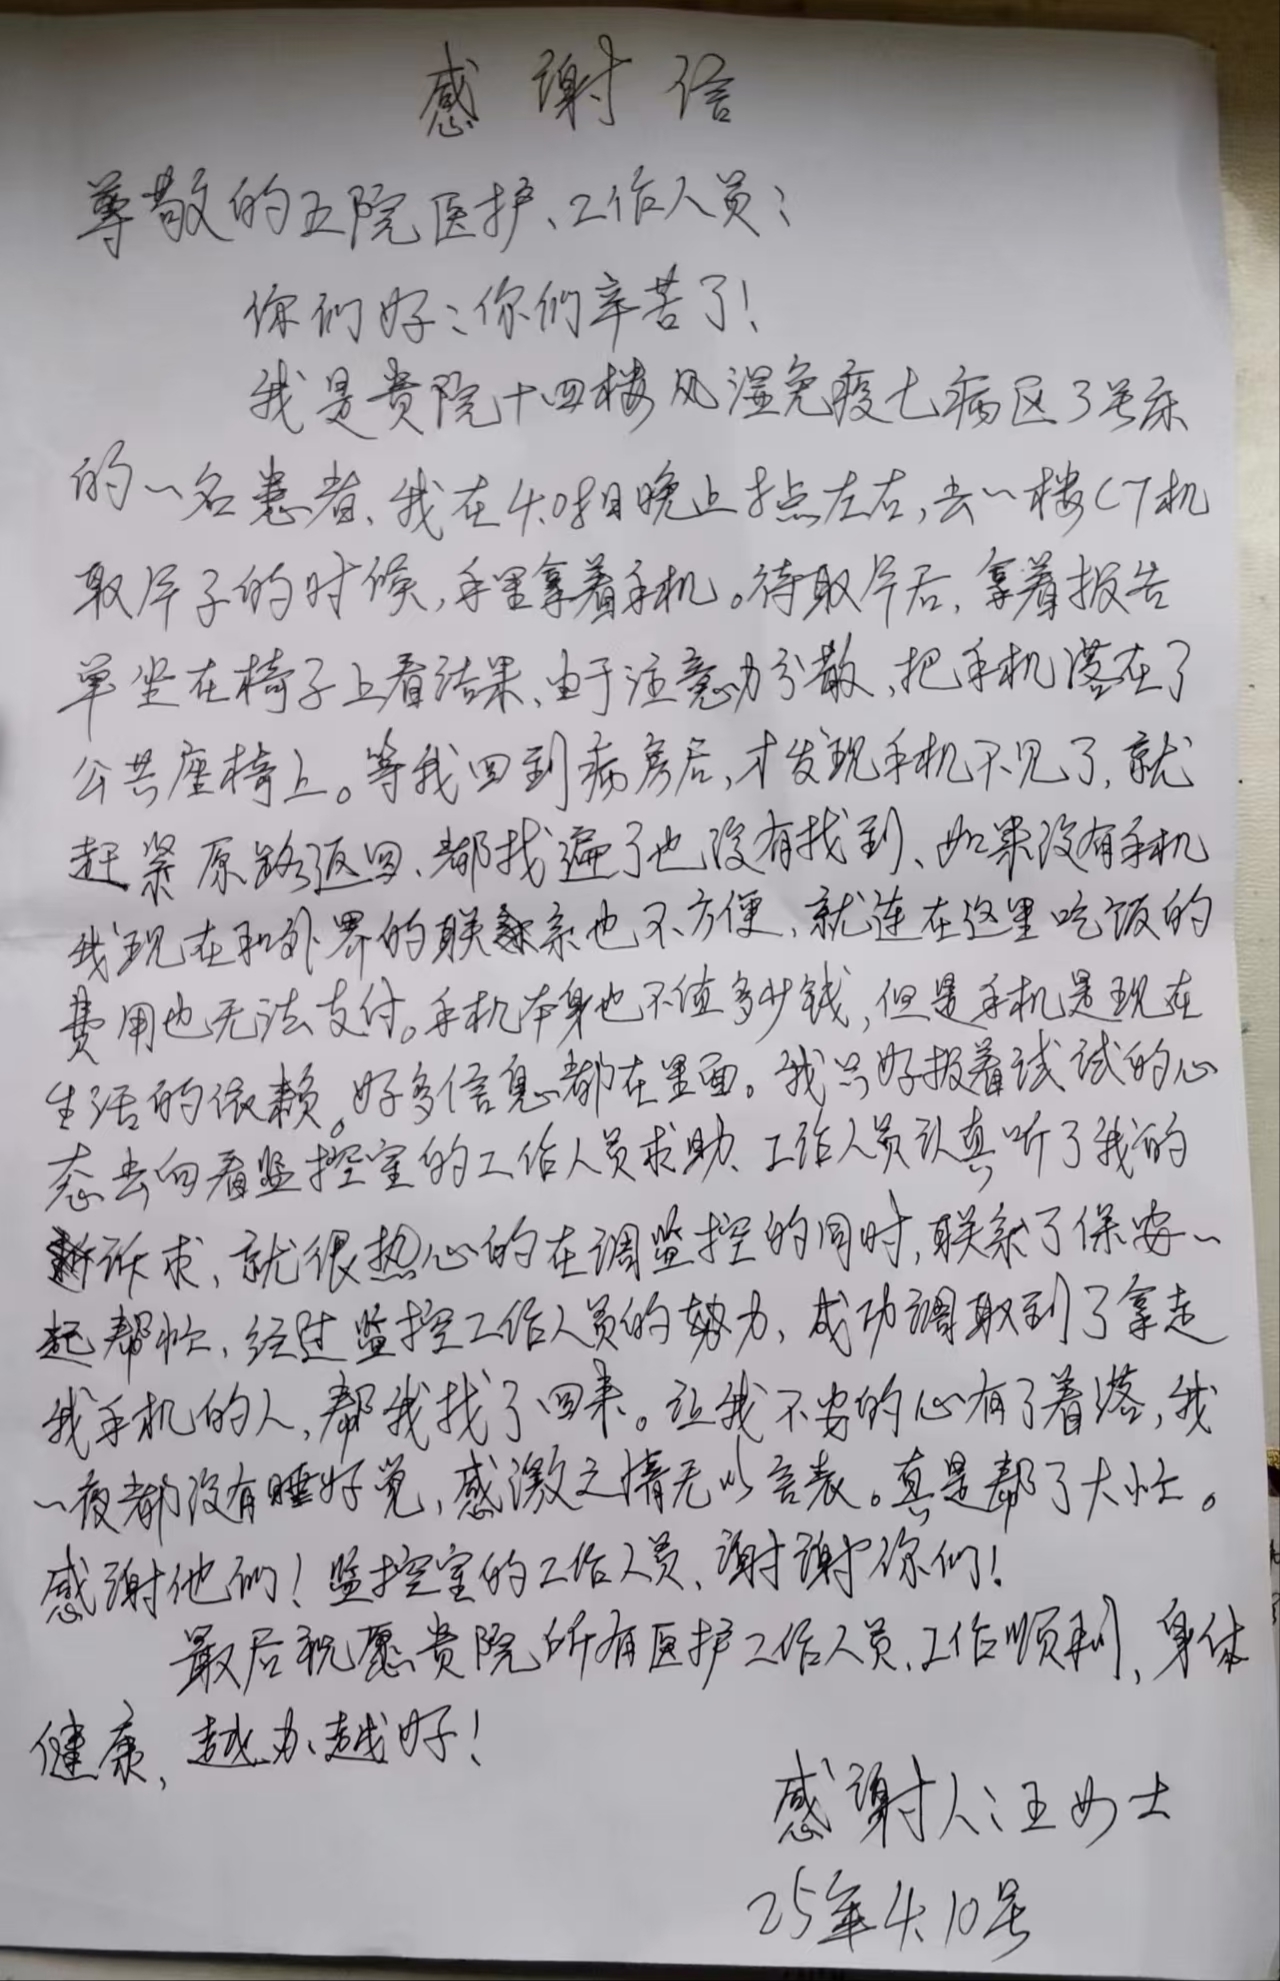 感谢信
尊敬的五院医护、工作人员：
你们好：你们辛苦了！
我是贵院十四楼风湿免疫七病区3号床
的一名患者、我在4.日晚上点左右,去一楼CT机
取片子的时候,手里拿着手机。待取片后,拿着报告
单坐在椅子上看结果、由于注意力分散,把手机落在了
公共座椅上。等我回到病房后,才发现手机不见了,就
赶紧原路返回、都找遍了也没有找到、如果没有手机
我现在和外界的联系也不方便、就连在这里吃饭的
费用也无法支付。手机本身也不值多少钱,但是手机是现在
生活的依赖。好多信息都在里面。我只好报着试试的心
态去向看监控室的工作人员求助、工作人员认真听了我的
诉求,就很热心的在调监控的同时,联系了保安一
起帮忙,经过监控工作人员的努力,成功调取到了拿走
我手机的人,帮我找了回来。让我不安的心有了着落,我
一夜都没有睡好觉,感激之情无以言表。真是帮了大忙。
感谢他们！监控室的工作人员、谢谢你们！
最后祝愿贵院所有医护工作人员、工作顺利,身体
健康,越办越好！
感谢人：汪女士
25年4.10号